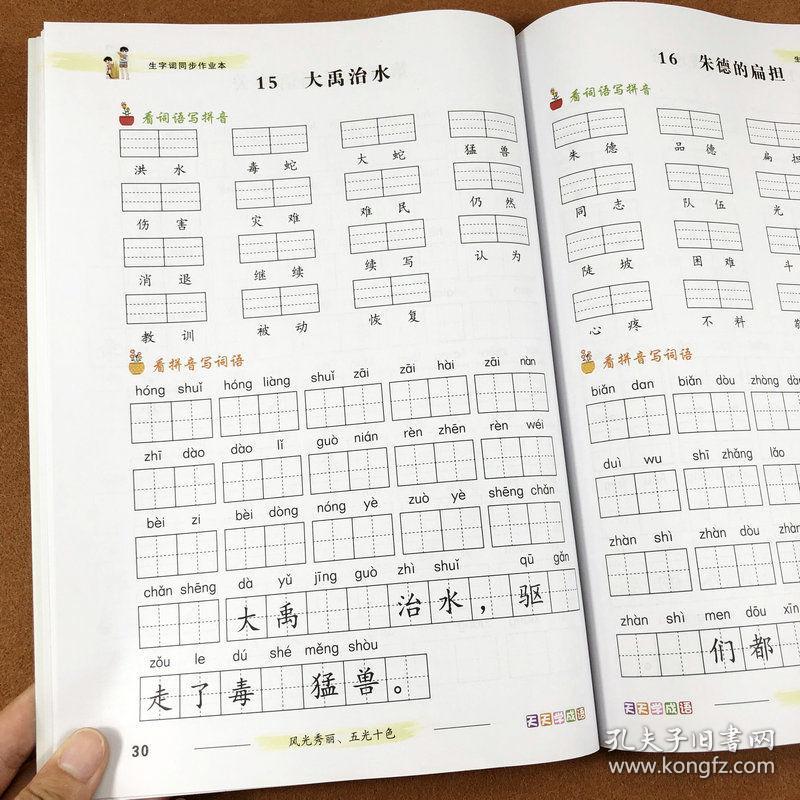 生字词同步作业本
15 大禹治水
看词语写拼音
洪水 毒蛇 大蛇 猛兽
伤害 灾难 难民 仍然
消退 继续 续写 认为
教训 被动 恢复
看拼音写词语
hóng shuǐ hóng liàng shuǐ zāi zāi hài zāi nàn
zhī dào dào lǐ guò nián rèn zhēn rèn wéi
bèi zi bèi dòng nóng yè zuò yè shēng chǎn
chǎn shēng dà yǔ jīng guò zhì shuǐ qū gǎn
大禹 治水，驱
zǒu le dú shé měng shòu
走了毒 猛兽。
天天学成语
30
风光秀丽、五光十色
16 朱德的扁担
看词语写拼音
朱德 品德 扁担
同志 队伍 光
陡坡 困难 斗
心疼 不料
看拼音写词语
biǎn dan biǎn dòu zhòng
duì wu shī zhǎng lǎo
zhàn shì zhàn dòu zhàn
zhàn shì men dōu xīn
们都
天天学成语
孔夫子旧书网
www.kongfz.com